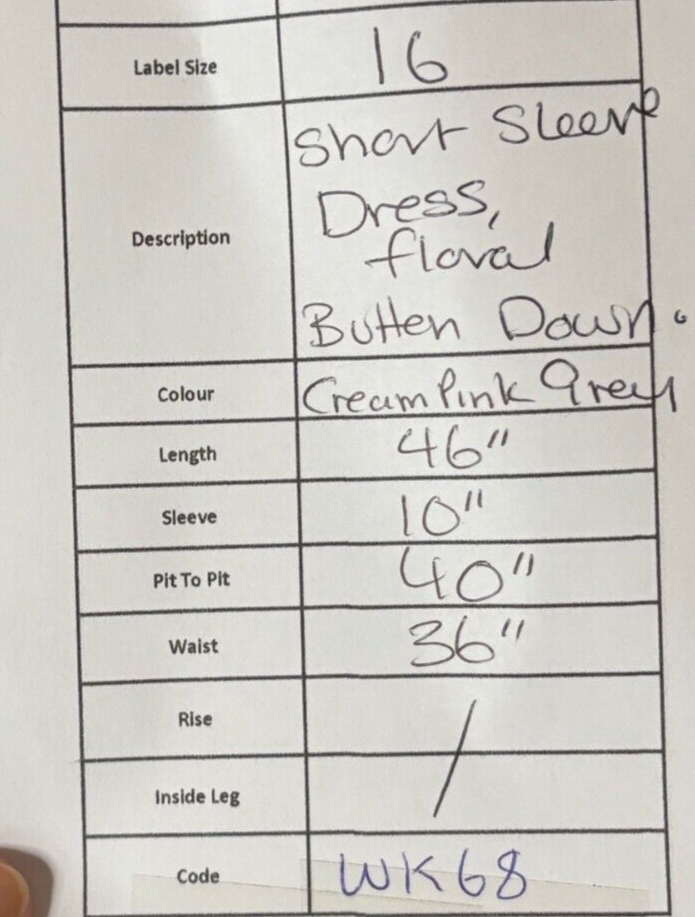 Label Size 16
Description
Short Sleeve
Dress,
floral
Butten Down.
Colour Cream Pink Grey
Length 46"
Sleeve 10"
Pit To Pit 40"
Waist 36"
Rise /
Inside Leg
Code WK68